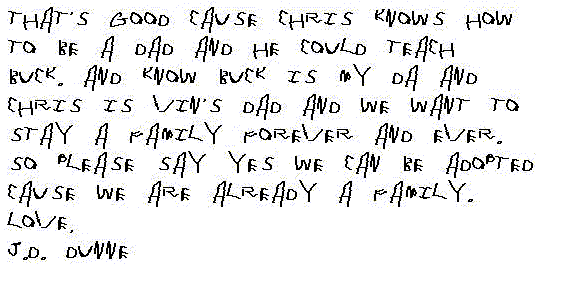 THAT'S GOOD CAUSE CHRIS KNOWS HOW
TO BE A DAD AND HE COULD TEACH
BUCK. AND KNOW BUCK IS MY DA AND
CHRIS IS VIN'S DAD AND WE WANT TO
STAY A FAMILY FOREVER AND EVER.
SO PLEASE SAY YES WE CAN BE ADOPTED
CAUSE WE ARE ALREADY A FAMILY.
LOVE,
J.D. DUNNE